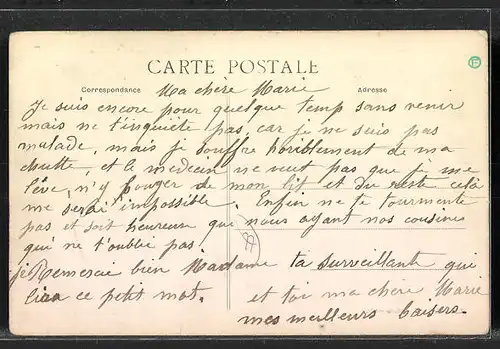 CARTE POSTALE
Correspondance
Adresse
Ma chère Marie
Je suis encore pour quelque temp sans venir
mais ne t'inquiéte pas, car je ne suis pas
malade, mais je souffre horriblement de ma
chutte, et le medecin ne veut pas que je me
lève, n'y bouger de mon lit et du reste celà
me serai t'impossible. Enfin ne te tourmente
pas et soit heureuse qui nous ayant nos cousines
qui ne t'oublie pas.
je Remercie bien Madame ta surveillante qui
lira ce petit mot.
et toi ma chere Marie
mes meilleurs baisers.